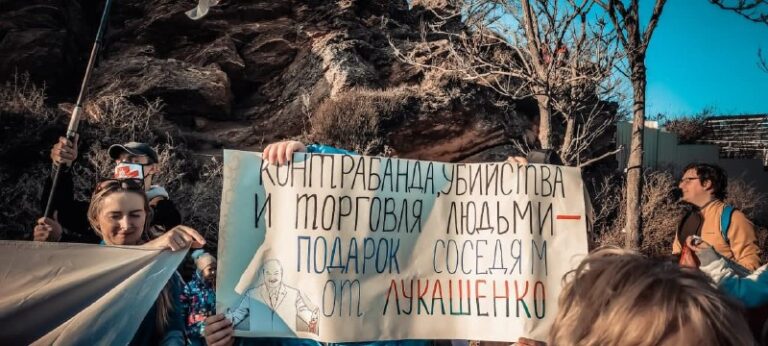 КОНТРАБАНДА, УБИЙСТВА
И ТОРГОВЛЯ ЛЮДЬМИ —
ПОДАРОК СОСЕДЯМ
ОТ ЛУКАШЕНКО